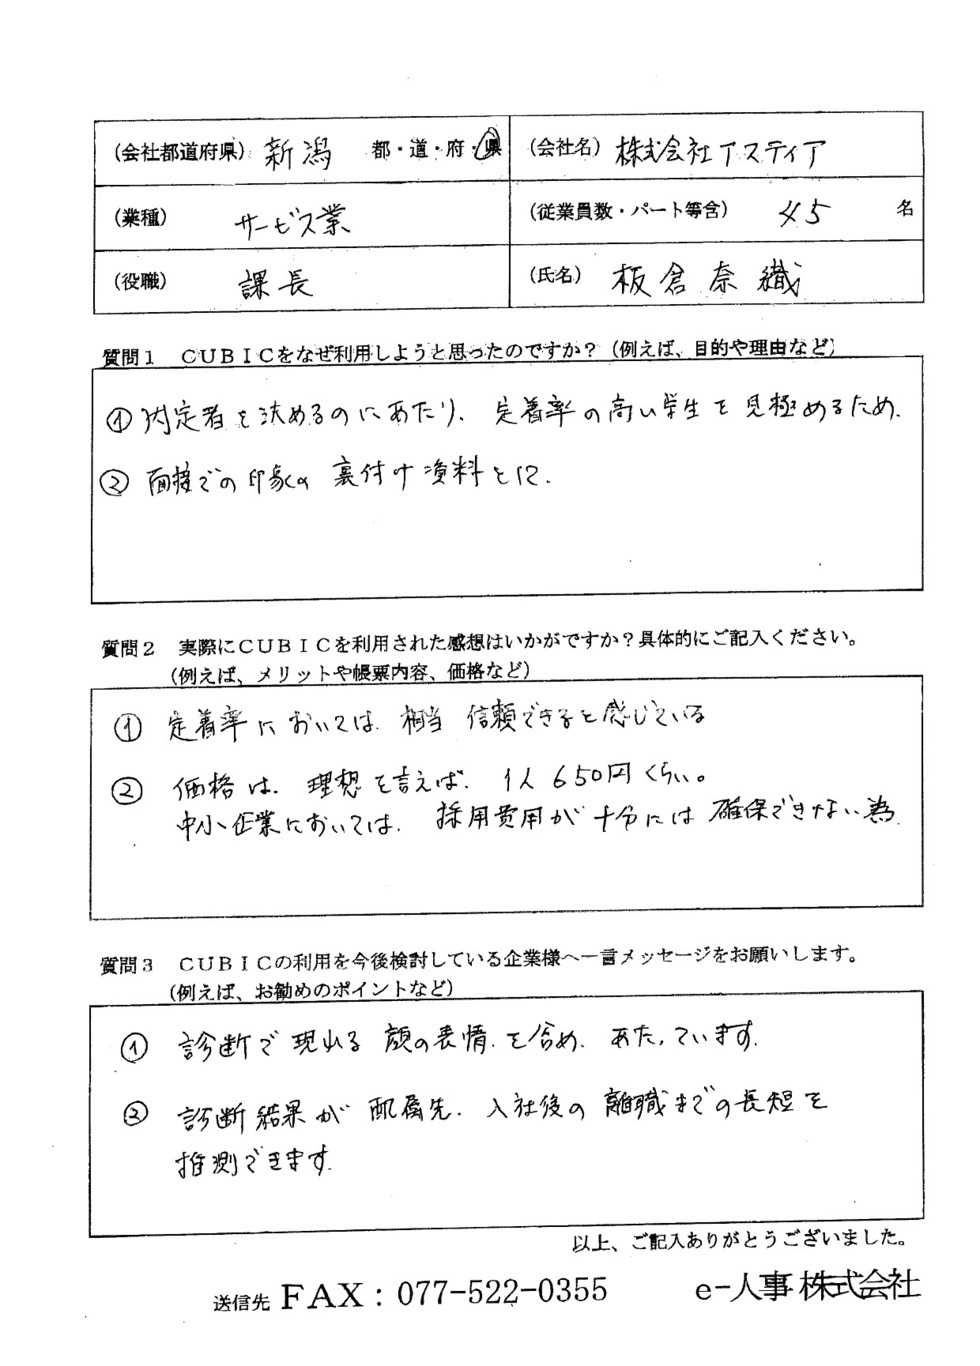 (会社都道府県) 新潟 都・道・府・県
(会社名) 株式会社アスティア
(業種) サービス業
(従業員数・パート等含) 45 名
(役職) 課長
(氏名) 板倉奈織
質問1 CUBICをなぜ利用しようと思ったのですか？（例えば、目的や理由など）
① 内定者を決めるのにあたり、定着率の高い学生を見極めるため.
② 面接での印象の裏付け資料とに.
質問2 実際にCUBICを利用された感想はいかがですか？具体的にご記入ください。
（例えば、メリットや帳票内容、価格など）
① 定着率においては、相当信頼できると感じている
② 価格は、理想を言えば、1人650円くらい。
中小企業においては、採用費用が十分には確保できない為.
質問3 CUBICの利用を今後検討している企業様へ一言メッセージをお願いします。
（例えば、お勧めのポイントなど）
① 診断で現れる顔の表情を含め、あたっています.
② 診断結果が配属先、入社後の離職までの長短を
推測できます.
以上、ご記入ありがとうございました。
送信先 FAX：077-522-0355 e-人事株式会社